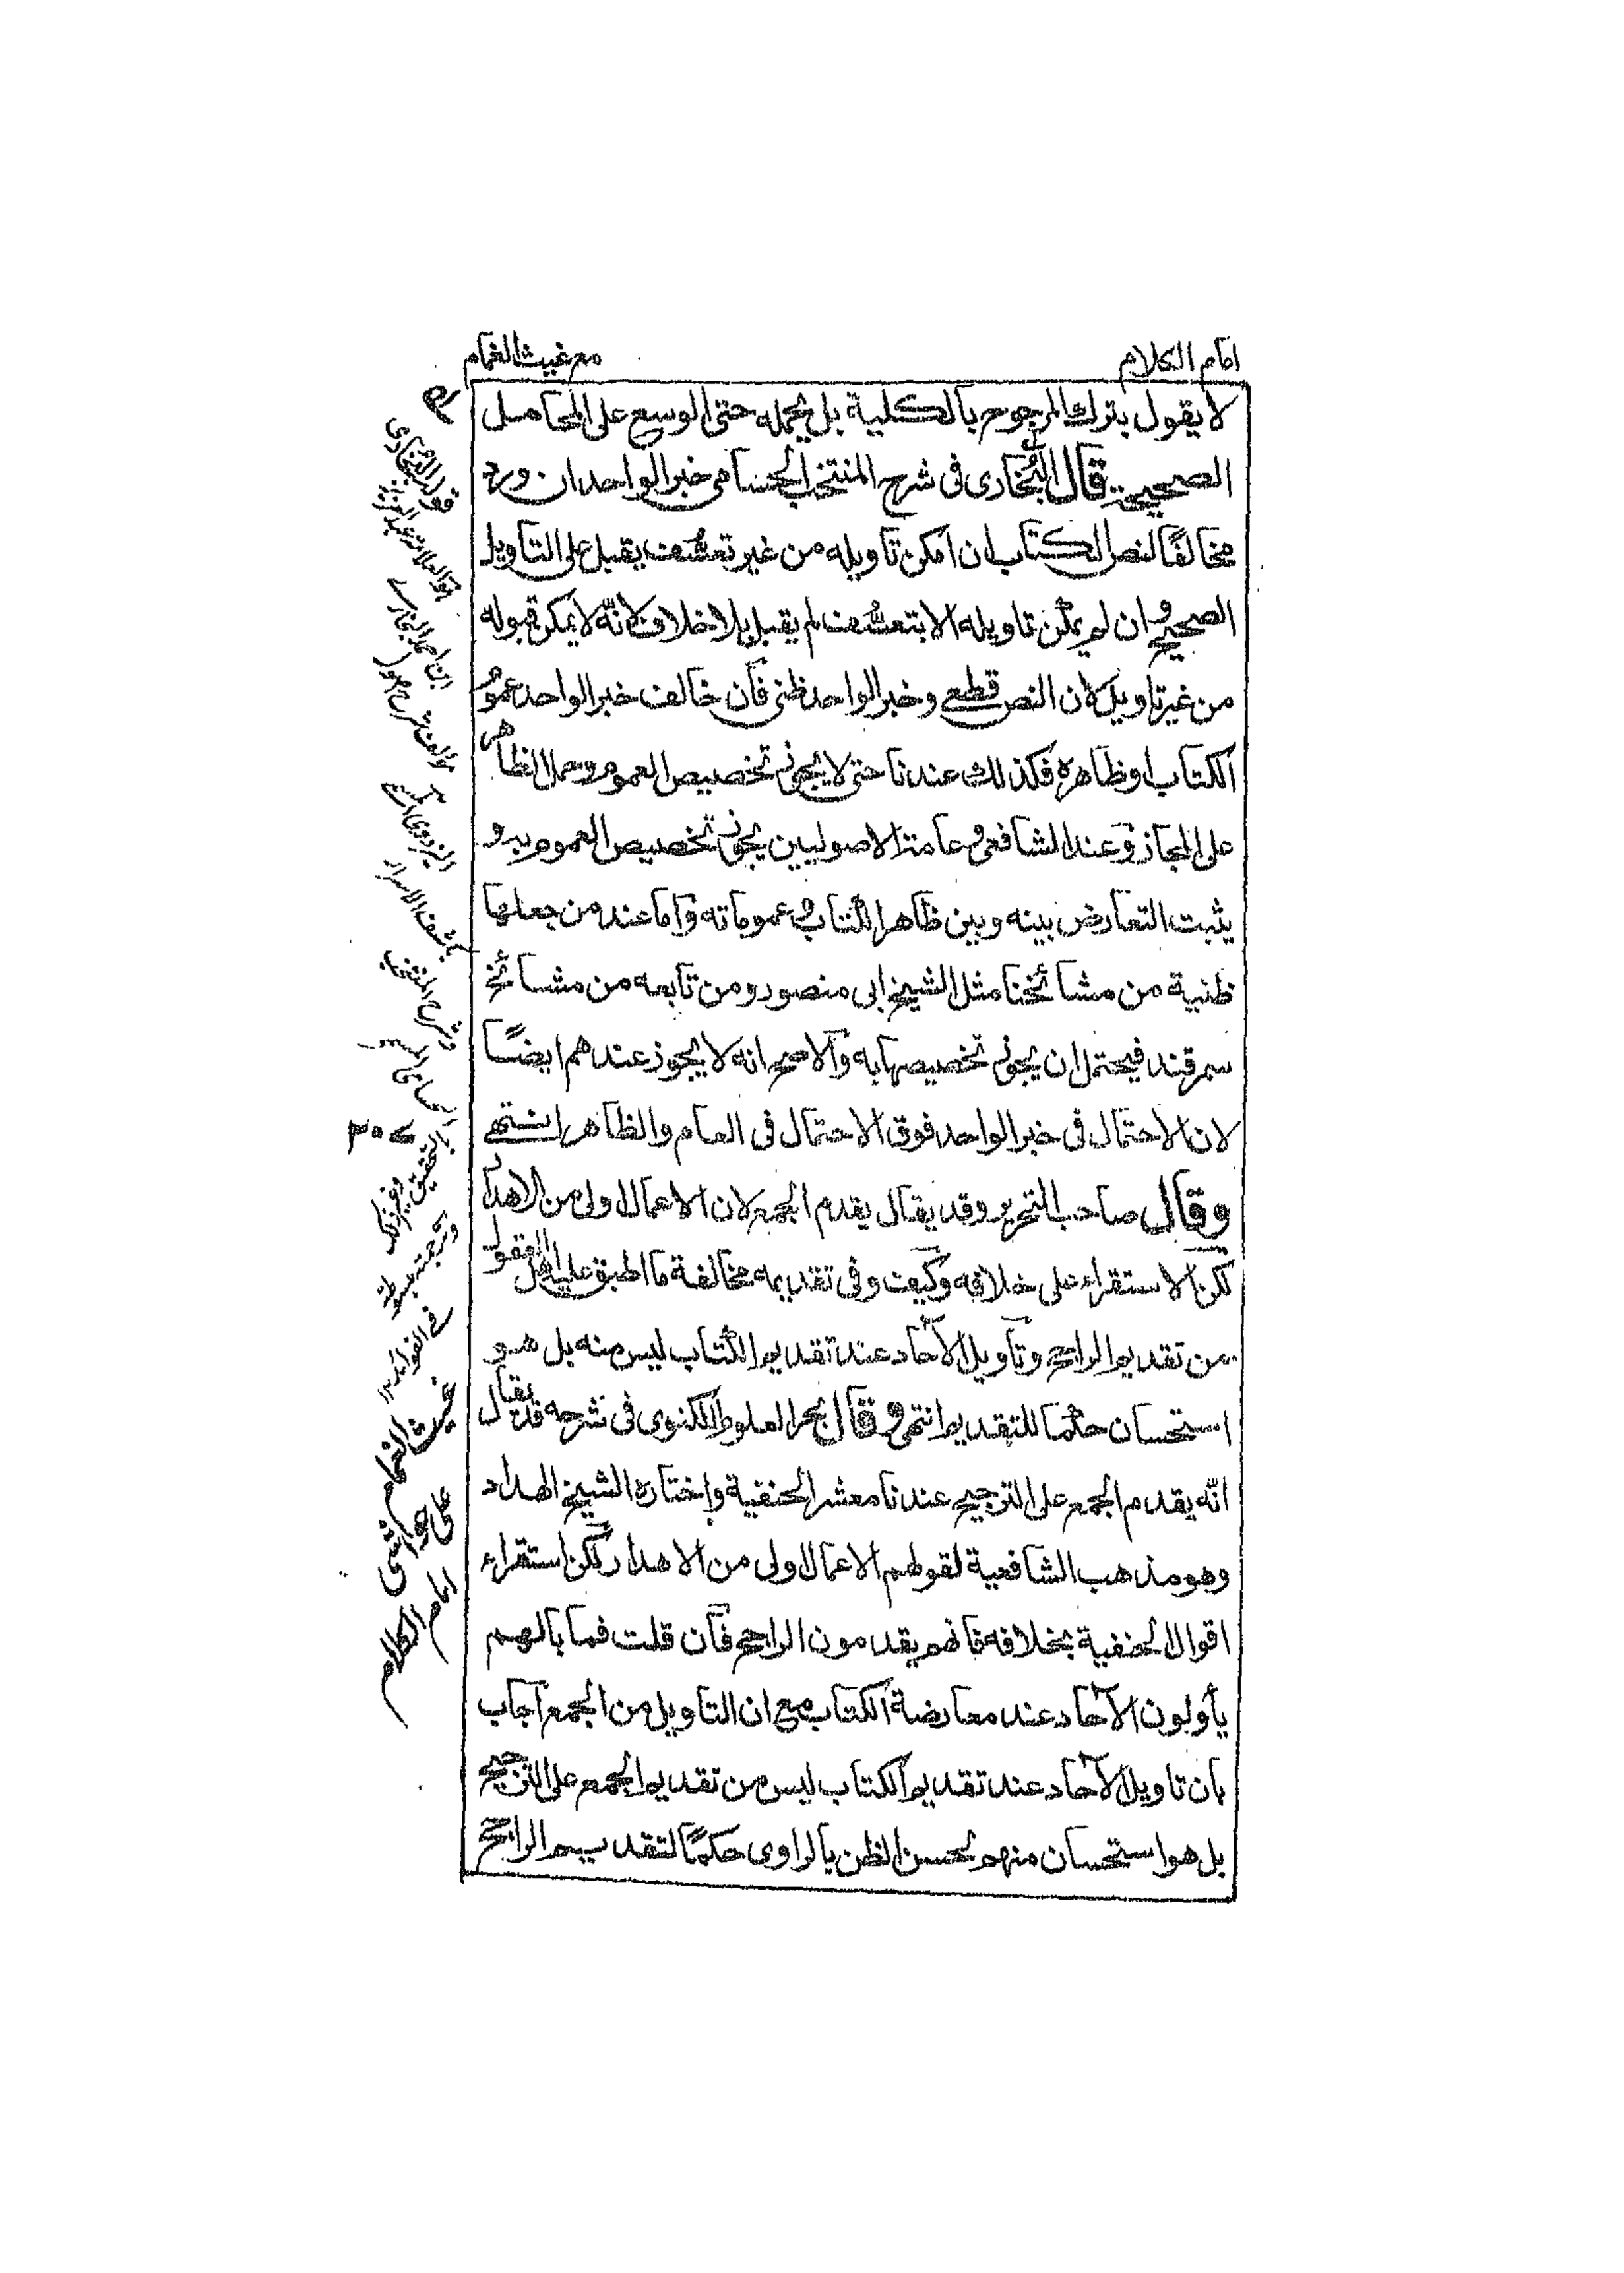 امام الكلام
مع غيث الغمام
لا يقول بترك المرجوح بالكلية بل يحمله حتى الوسع على المحامل
الصحيحة قال البخارى فى شرح المنتخب الحسامى خبر الواحد ان ورد
مخالفًا لنص الكتاب ان امكن تاويله من غير تعسّف يقبل على التاويل
الصحيح وان لم يمكن تاويله الا بتعسّف لم يقبل بلا خلاف لانّه لا يمكن قبوله
من غير تاويل لان النص قطعى وخبر الواحد ظنى فان خالف خبر الواحد عموم
الكتاب او ظاهره فكذلك عندنا حتى لا يجوز تخصيص العموم وحمل الظاهر
على المجاز وعند الشافعى وعامة الاصوليين يجوز تخصيص العموم به و
يثبت التعارض بينه وبين ظاهر الكتاب وعموماته واما عند من جعلها
ظنية من مشائخنا مثل الشيخ ابى منصور ومن تابعه من مشائخ
سمرقند فيحتمل ان يجوز تخصيصها به والاصح انه لا يجوز عندهم ايضًا
لان الاحتمال فى خبر الواحد فوق الاحتمال فى العام والظاهر انتهى
وقال صاحب التحرير وقد يقال يقدم الجمع لان الاعمال اولى من الاهدار
لكن الاستقراء على خلافه وكيف وفى تقديمه مخالفة ما اطبق عليه اهل العقول
من تقديم الراجح وتاويل الآحاد عند تقديم الكتاب ليس منه بل هو
استحسان حكما للتقديم انتهى وقال بحر العلوم اللكنوى فى شرحه قد يقال
انّه يقدم الجمع على الترجيح عندنا معشر الحنفية واختاره الشيخ الهداد
وهو مذهب الشافعية لقولهم الاعمال اولى من الاهدار لكن استقراء
اقوال الحنفية بخلافه فانهم يقدمون الراجح فان قلت فما بالهم
يأولون الآحاد عند معارضة الكتاب مع ان التاويل من الجمع اجاب
بان تاويل الآحاد عند تقديم الكتاب ليس من تقديم الجمع على الترجيح
بل هو استحسان منهم لحسن الظن بالراوى حكمًا لتقديم الراجح
قوله البخارى
هو العلامة عبد العزيز
ابن احمد البخارى
مؤلف شرح اصول
البزدوى المسمى
بكشف الاسرار
وشرح المنتخب
الحسامى المسمى
بالتحقيق وغير ذلك
وترجمته مبسوطة
فى الفوائد
غيث الغمام
على حواشى
امام الكلام